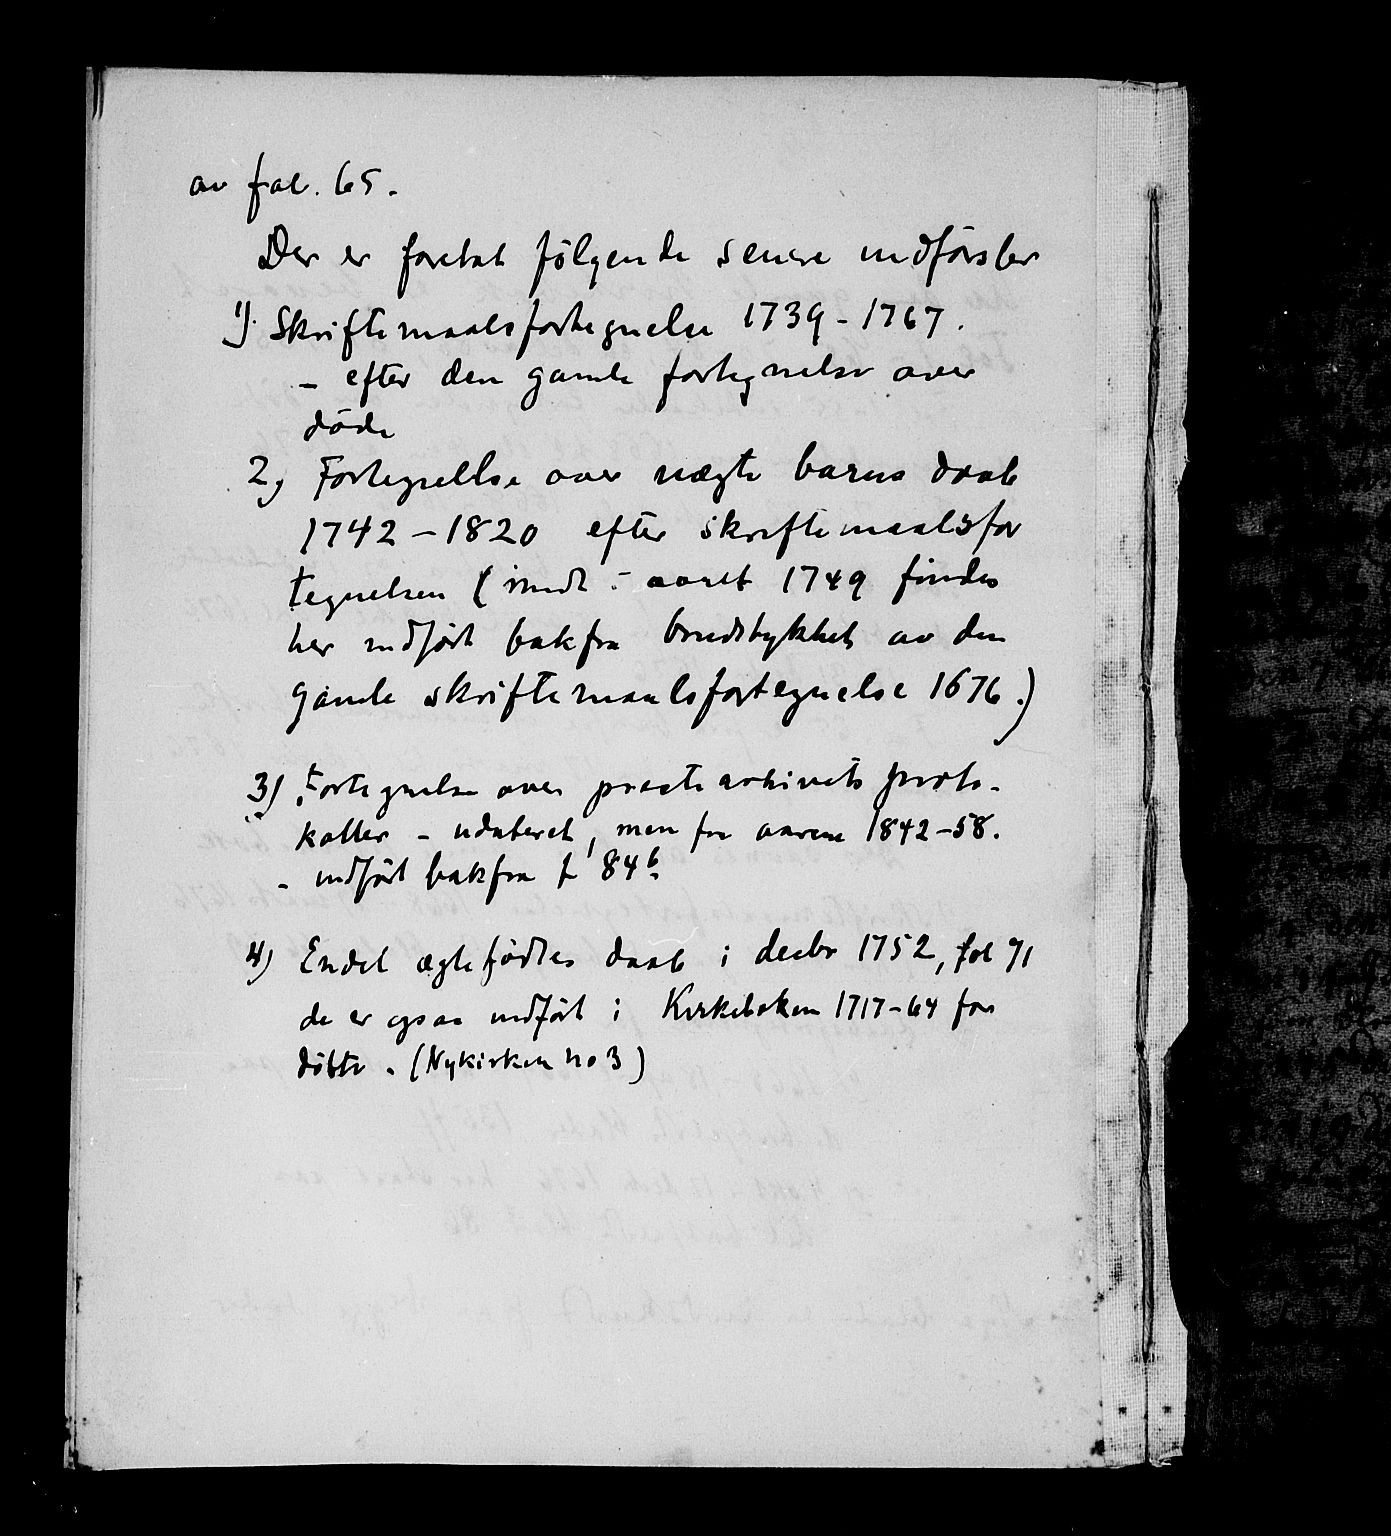 av fol. 65.
Der er foretat følgende senere indførsler
1). Skriftemaalsfortegnelse 1739-1767.
- efter den gamle fortegnelse over
døde
2) Fortegnellse over uægte barns daab
1742-1820 efter skriftemaalsfor
tegnelsen ( indt aaret 1749 findes
her indført bakfra brudstykket av den
gamle skriftemaalsfortegnelse 1676.)
3) Fortegnelse over prestearkivets proto-
koller - udateret, men fra aarene 1842-58.
- indført bakfra f 84b.
4) Endel ægtefødtes daab i decbr 1752, fol 71
de er ogsaa indført i Kirkeboken 1717-64 for
døbte. (Nykirken no 3)